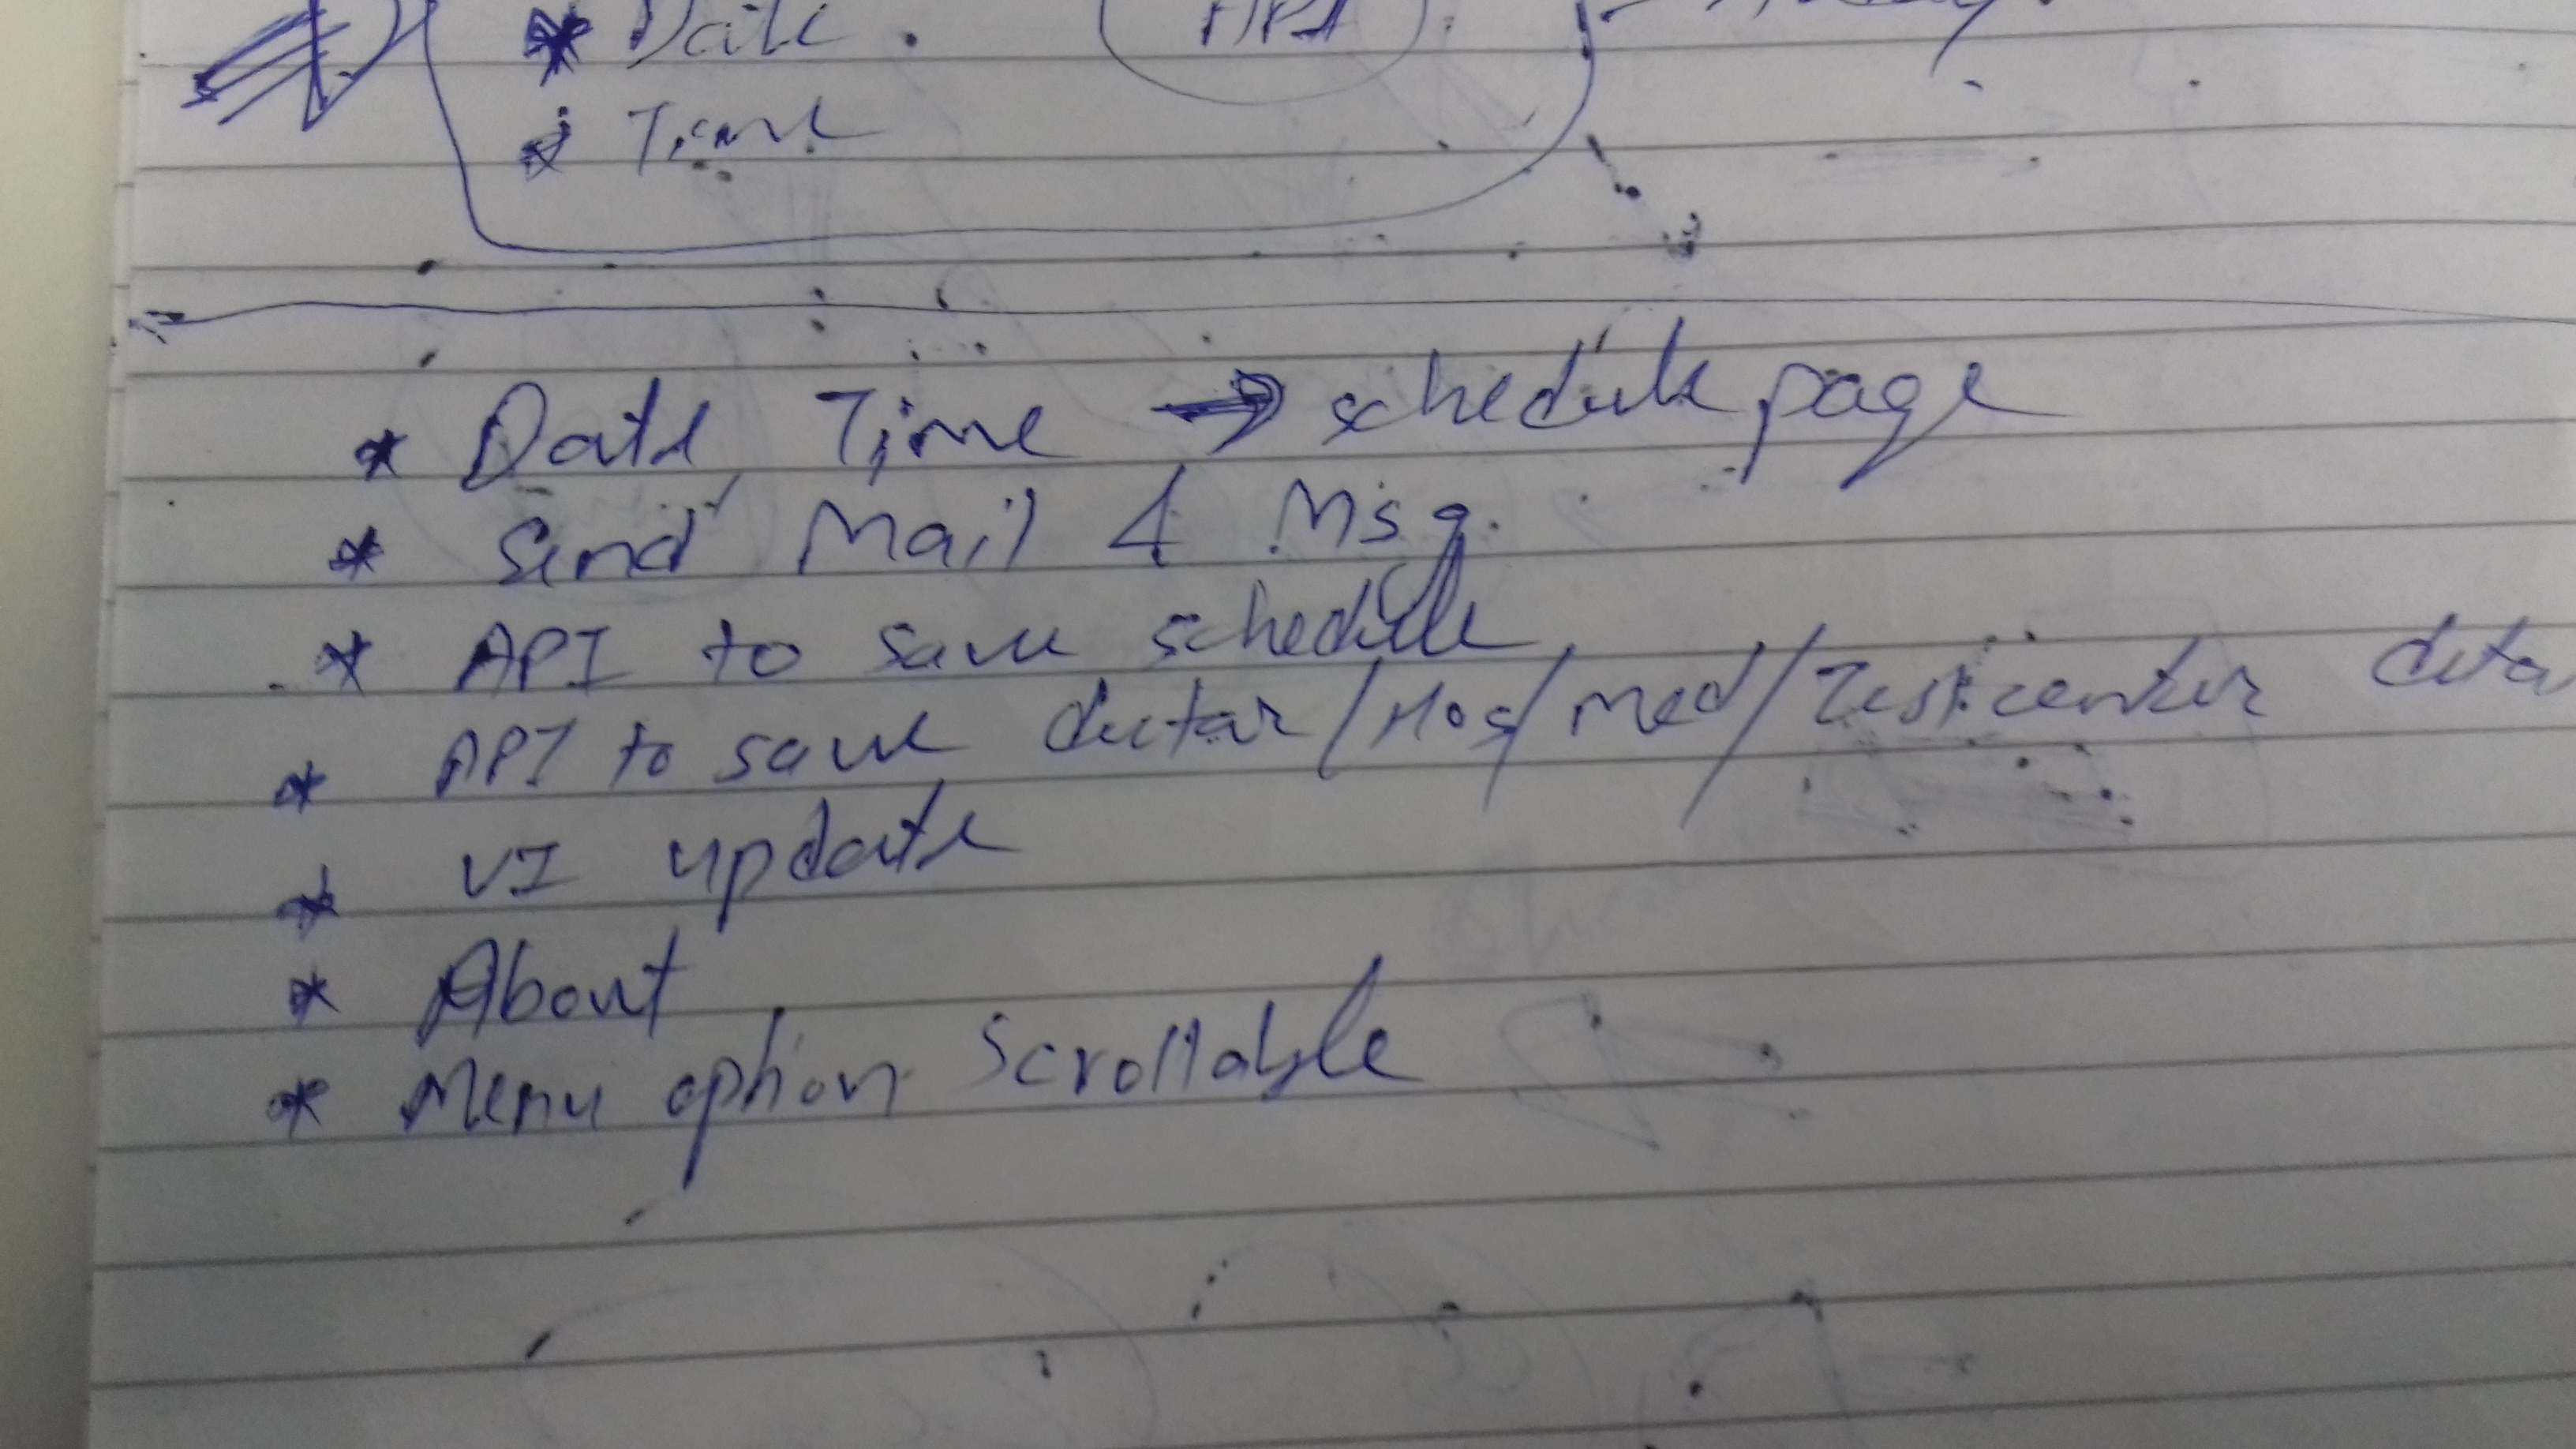 * Date . API
* Time
* Date Time → schedule page
* Send Mail & Msg.
* API to save schedule
* API to save doctor/Hos/Med/Test center deta
* UI update
* About
* Menu option Scrollable